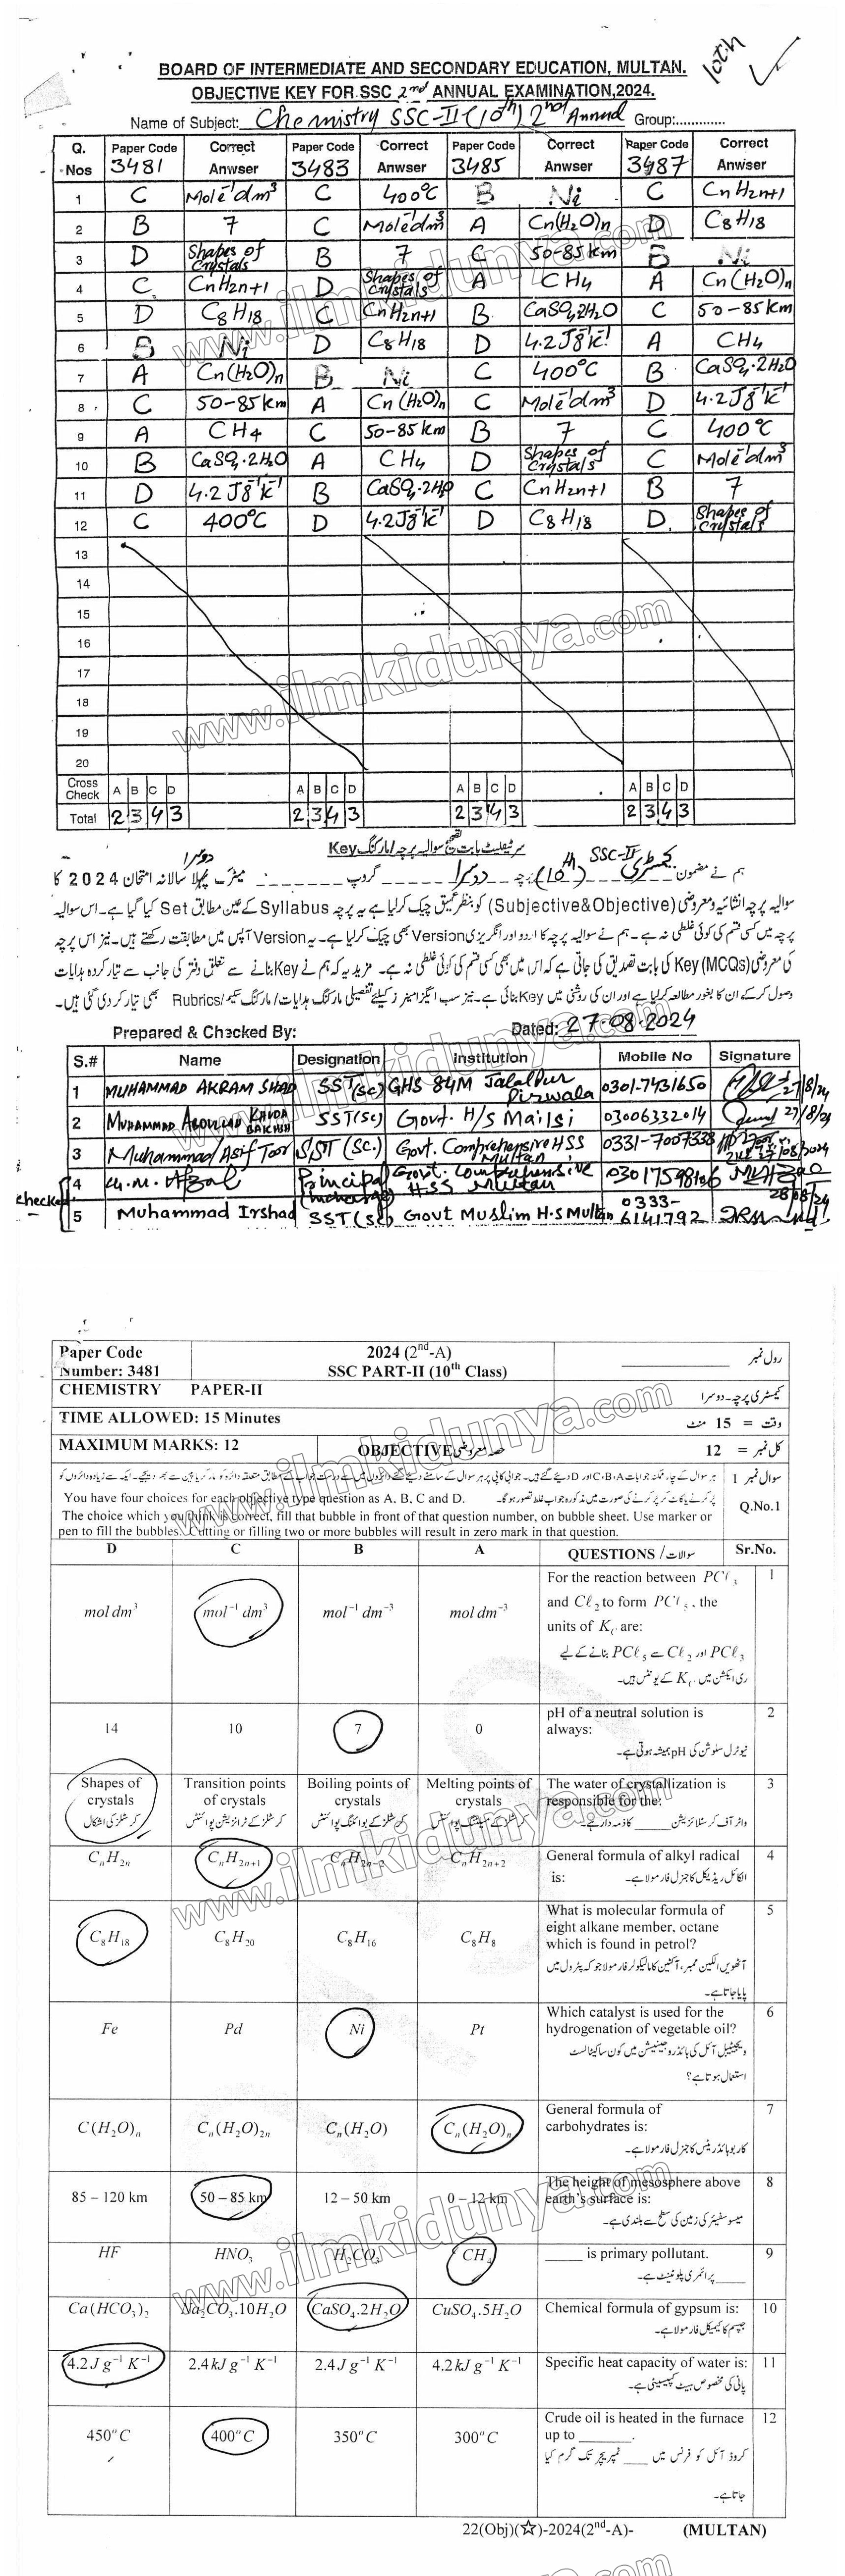 10th
BOARD OF INTERMEDIATE AND SECONDARY EDUCATION, MULTAN.
OBJECTIVE KEY FOR SSC 2nd ANNUAL EXAMINATION,2024.
Name of Subject: Chemistry SSC-II (10th) 2nd Annual Group:............
Q. Nos Paper Code 3481 Correct Anwser Paper Code 3483 Correct Anwser Paper Code 3485 Correct Anwser Paper Code 3487 Correct Anwser
1 C Mole⁻¹dm³ C 400°C B Ni C CnH2n+1
2 B 7 C Mole⁻¹dm³ A Cn(H2O)n D C8H18
3 D Shapes of Crystals B 7 C 50-85km B Ni
4 C CnH2n+1 D Shapes of Crystals A CH4 A Cn(H2O)n
5 D C8H18 C CnH2n+1 B CaSO4.2H2O C 50-85km
6 B Ni D C8H18 D 4.2Jg⁻¹K⁻¹ A CH4
7 A Cn(H2O)n B Ni C 400°C B CaSO4.2H2O
8 C 50-85km A Cn(H2O)n C Mole⁻¹dm³ D 4.2Jg⁻¹K⁻¹
9 A CH4 C 50-85km B 7 C 400°C
10 B CaSO4.2H2O A CH4 D Shapes of Crystals C Mole⁻¹dm³
11 D 4.2Jg⁻¹K⁻¹ B CaSO4.2H2O C CnH2n+1 B 7
12 C 400°C D 4.2Jg⁻¹K⁻¹ D C8H18 D Shapes of Crystals
13
14
15
16
17
18
19
20
Cross Check A B C D A B C D A B C D A B C D
Total 2 3 4 3 2 3 4 3 2 3 4 3 2 3 4 3
www.ilmkidunya.com
www.ilmkidunya.com
سرٹیفکیٹ بابت تصحیح سوالیہ پرچہ/مارکنگ Key
ہم نے مضمون کیمسٹری SSC-II (10th) پرچہ دوسرا گروپ میٹرک پہلا دوسرا سالانہ امتحان 2024 کا
سوالیہ پرچہ انشائیہ ومعروضی (Subjective&Objective) کو بنظر عمیق چیک کر لیا ہے یہ پرچہ Syllabus کے عین مطابق Set کیا گیا ہے۔ اس سوالیہ
پرچہ میں کسی قسم کی کوئی غلطی نہ ہے۔ ہم نے سوالیہ پرچہ کا اردو اور انگریزی Version بھی چیک کر لیا ہے۔ یہ Version آپس میں مطابقت رکھتے ہیں۔ نیز اس پرچہ
کی معروضی (MCQs) Key کی بابت تصدیق کی جاتی ہے کہ اس میں بھی کسی قسم کی کوئی غلطی نہ ہے۔ مزید یہ کہ ہم نے Key بنانے سے متعلق دفتر کی جانب سے تیار کردہ ہدایات
وصول کر کے ان کا بغور مطالعہ کر لیا ہے اور ان کی روشنی میں Key بنائی ہے۔ نیز سب ایگزامینرز کیلئے تفصیلی مارکنگ ہدایات/مارکنگ سکیم/Rubrics بھی تیار کر دی گئی ہیں۔
Prepared & Checked By: Dated: 27-08-2024
S.# Name Designation Institution Mobile No Signature
1 MUHAMMAD AKRAM SHAD SST(sc) GHS 84M Jalalpur Pirwala 0301-7431650 27/8/24
2 MUHAMMAD ABDULLAH KHUDA BAKHSH SST(Sc) Govt. H/S Mailsi 03006332014 27/8/24
3 Muhammad Asif Toor SST (SC.) Govt. Comprehensive HSS Multan 0331-7007338
checked 4 Principal Govt. Comprehensive HSS Multan
5 Muhammad Irshad SST(Sc) Govt Muslim H.S Multan 0333-6141792 28/08/24
Paper Code Number: 3481 2024 (2nd-A) SSC PART-II (10th Class) رول نمبر
CHEMISTRY PAPER-II کیمسٹری پرچہ-دوسرا
TIME ALLOWED: 15 Minutes وقت = 15 منٹ
MAXIMUM MARKS: 12 OBJECTIVE حصہ معروضی کل نمبر = 12
سوال نمبر 1
You have four choices for each objective type question as A, B, C and D.
Q.No.1
The choice which you think is correct, fill that bubble in front of that question number, on bubble sheet. Use marker or
pen to fill the bubbles. Cutting or filling two or more bubbles will result in zero mark in that question.
D C B A QUESTIONS / سوالات Sr.No.
mol dm³ mol⁻¹ dm³ mol⁻¹ dm⁻³ mol dm⁻³ For the reaction between PCl₃ and Cl₂ to form PCl₅, the units of Kc are: 1
PCl₃ اور Cl₂ سے PCl₅ بنانے کے لیے
ری ایکشن میں Kc کے یونٹس ہیں۔
14 10 7 0 pH of a neutral solution is always: 2
نیوٹرل سلوشن کی pH ہمیشہ ہوتی ہے۔
Shapes of crystals Transition points of crystals Boiling points of crystals Melting points of crystals The water of crystallization is responsible for the: 3
کرسٹلز کی اشکال کرسٹلز کے ٹرانزیشن پوائنٹس کرسٹلز کے بوائلنگ پوائنٹس کرسٹلز کے میلٹنگ پوائنٹس واٹر آف کرسٹلائزیشن ____ کا ذمہ دار ہے۔
CnH2n CnH2n+1 CnH2n-2 CnH2n+2 General formula of alkyl radical is: 4
الکائل ریڈیکل کا جنرل فارمولا ہے۔
C₈H₁₈ C₈H₂₀ C₈H₁₆ C₈H₈ What is molecular formula of eight alkane member, octane which is found in petrol? 5
آٹھویں الکین ممبر، آکٹین کا مالیکولر فارمولا جو کہ پٹرول میں
پایا جاتا ہے۔
Fe Pd Ni Pt Which catalyst is used for the hydrogenation of vegetable oil? 6
ویجیٹیبل آئل کی ہائڈروجینیشن میں کون سا کیٹالسٹ
استعمال ہوتا ہے؟
C(H₂O)n Cn(H₂O)2n Cn(H₂O) Cn(H₂O)n General formula of carbohydrates is: 7
کاربوہائڈریٹس کا جنرل فارمولا ہے۔
85 – 120 km 50 – 85 km 12 – 50 km 0 – 12 km The height of mesosphere above earth's surface is: 8
میسوسفیئر کی زمین کی سطح سے بلندی ہے۔
HF HNO₃ H₂CO₃ CH₄ ____ is primary pollutant. 9
____ پرائمری پلوٹینٹ ہے۔
Ca(HCO₃)₂ Na₂CO₃.10H₂O CaSO₄.2H₂O CuSO₄.5H₂O Chemical formula of gypsum is: 10
جپسم کا کیمیکل فارمولا ہے۔
4.2J g⁻¹ K⁻¹ 2.4kJ g⁻¹ K⁻¹ 2.4J g⁻¹ K⁻¹ 4.2kJ g⁻¹ K⁻¹ Specific heat capacity of water is: 11
پانی کی مخصوص ہیٹ کپیسیٹی ہے۔
450°C 400°C 350°C 300°C Crude oil is heated in the furnace up to ______. 12
کروڈ آئل کو فرنس میں ____ ٹمپریچر تک گرم کیا
جاتا ہے۔
www.ilmkidunya.com
www.ilmkidunya.com
22(Obj)(☆)-2024(2nd-A)- (MULTAN)